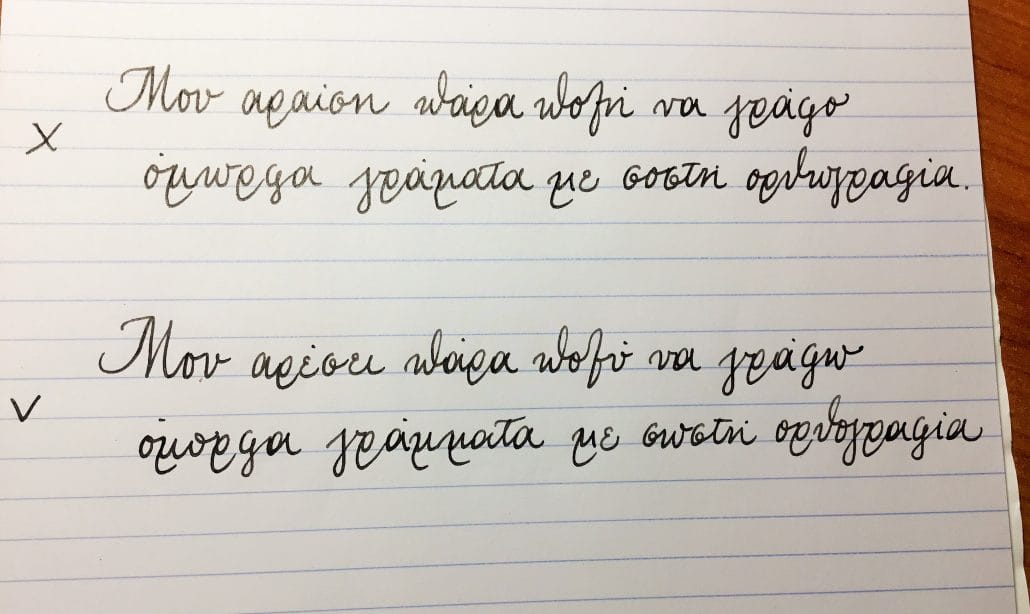 Μου αραίση πάρα πολή να γράφο
X
όμωρφα γράματα με σοστή ορθωγραφία.
Μου αρέσει πάρα πολύ να γράφω
✓
όμορφα γράμματα με σωστή ορθογραφία